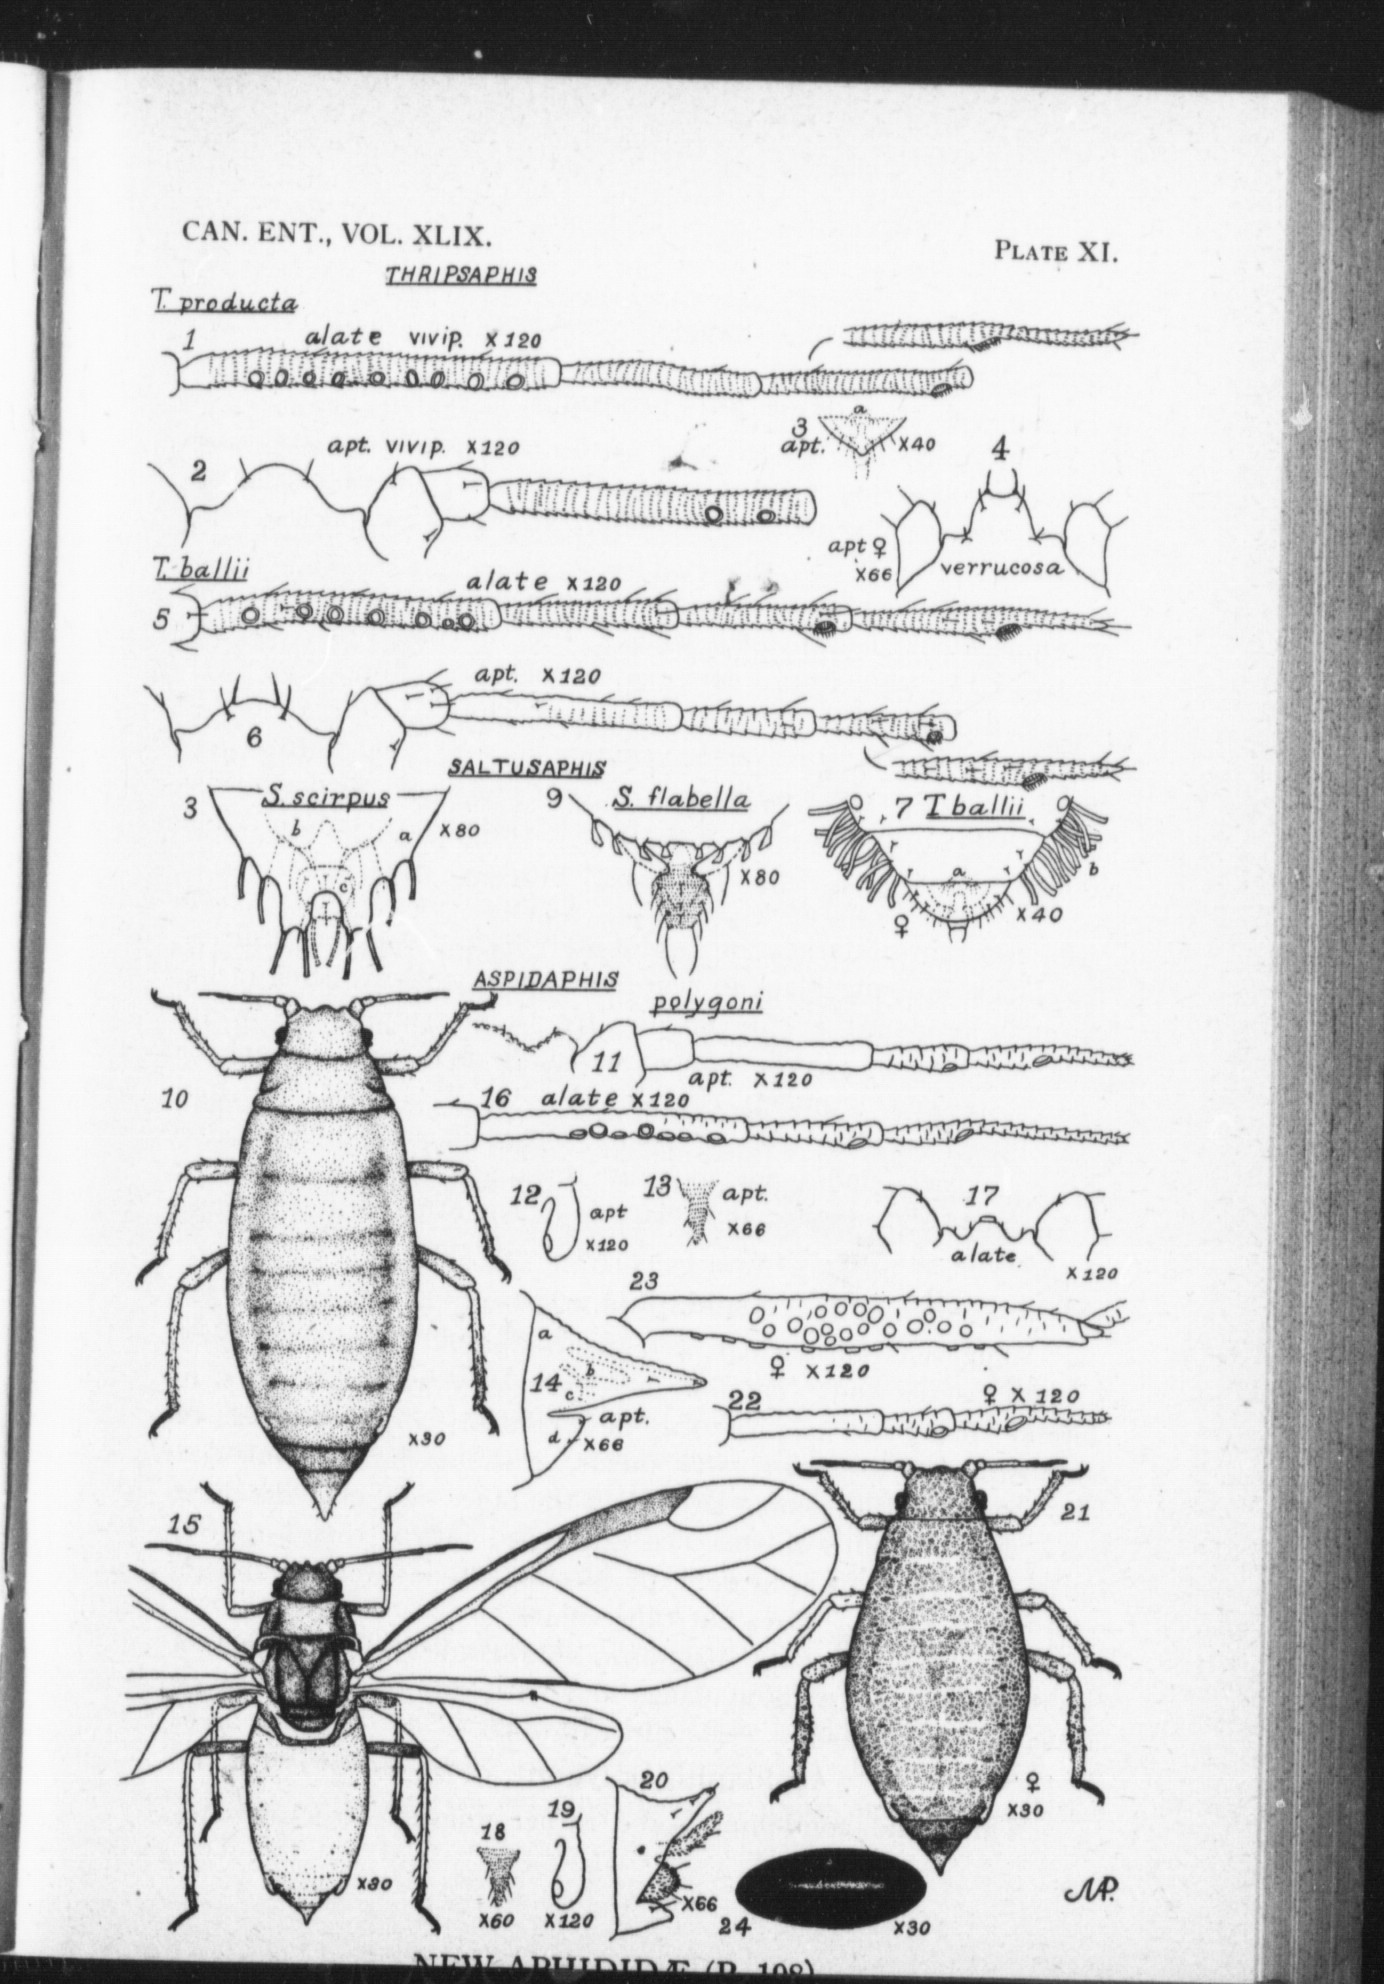 CAN. ENT., VOL. XLIX.
PLATE XI.
THRIPSAPHIS
T. producta
1 alate vivip. X120
3 a
apt. X40
apt. vivip. X120
2
4
apt ♀
X66
verrucosa
T. ballii
alate X120
5
apt. X120
6
SALTUSAPHIS
3 S. scirpus
b a X80
c
9 S. flabella
X80
7 T ballii
a b
♀ X40
ASPIDAPHIS
polygoni
10
11
apt. X120
16 alate X120
12 apt
X120
13 apt.
X66
17
alate
X120
23
♀ X120
a
14 b
c
apt.
d X66
22 ♀ X120
X30
15
21
♀
X30
20
19
18
X30
X60
X120
X66
24 X30
MP.
NEW APHIDIDÆ (P. 198)